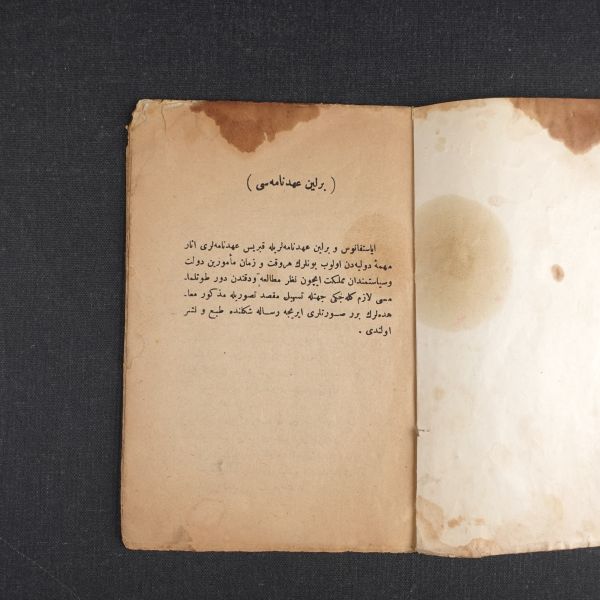 ( برلین عهدنامه‌سی )
ایاستفانوس و برلین عهدنامه‌لریله قبریس عهدنامه‌لری آثار
مهمهٔ دولیه‌دن اولوب بونلرك هروقت و زمان مأمورین دولت
وسیاستمندان مملکت ایچون نظر مطالعه ودقتدن دور طوتلما۔
مسی لازم کله‌جکی جهتله تسهیل مقصد تصوریله مذکور معا۔
هده‌لرك برر صورتلری آیریجه رساله شکلنده طبع و نشر
اولندی .